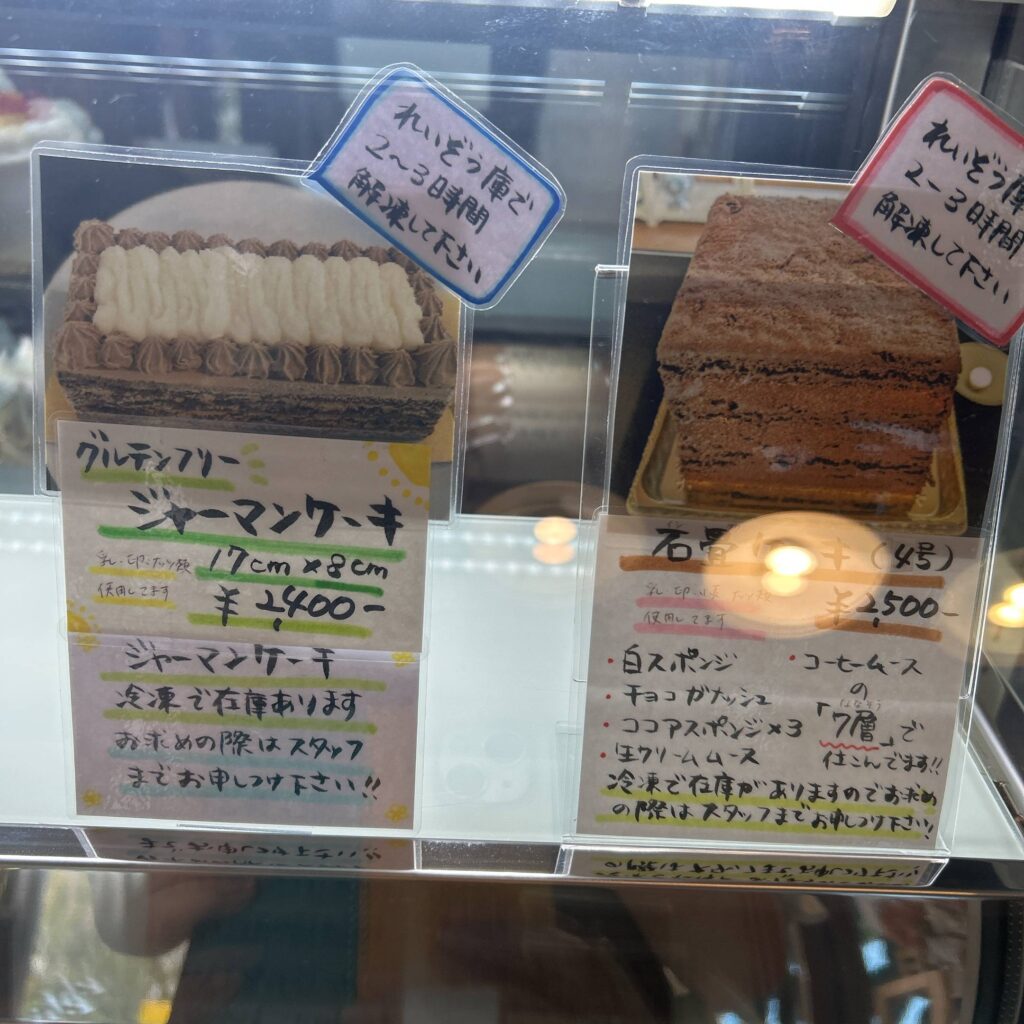 れいぞう庫で
2〜3日時間
解凍して下さい
グルテンフリー
ジャーマンケーキ
乳・卵・ナッツ類
使用してます
17cm×8cm
¥2,400-
ジャーマンケーキ
冷凍で在庫あります
お求めの際はスタッフ
までお申しつけ下さい!!
れいぞう庫
2〜3日時間
解凍して下さい
石畳 キ(4号)
使用してます
¥2,500-
・白スポンジ
・チョコガナッシュ
・ココアスポンジ×3
・生クリームムース
・コーヒームース
の
「7層」で
仕こんでます!!
冷凍で在庫がありますのでお求め
の際はスタッフまでお申しつけ下さい!